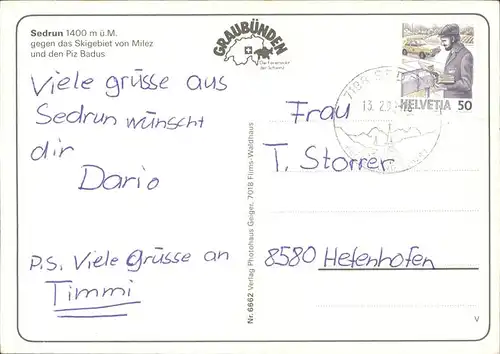 Sedrun 1400 m ü.M.
gegen das Skigebiet von Milez
und den Piz Badus
GRAUBÜNDEN
Die Ferienecke
der Schweiz
HELVETIA 50
7188 SED
13. 2.9
Viele grüsse aus
Sedrun wünscht
dir
Dario
P.S. Viele Grüsse an
Timmi
Nr. 6662 Verlag Photohaus Geiger, 7018 Flims-Waldhaus
Frau
T. Storrer
8580 Hefenhofen
V